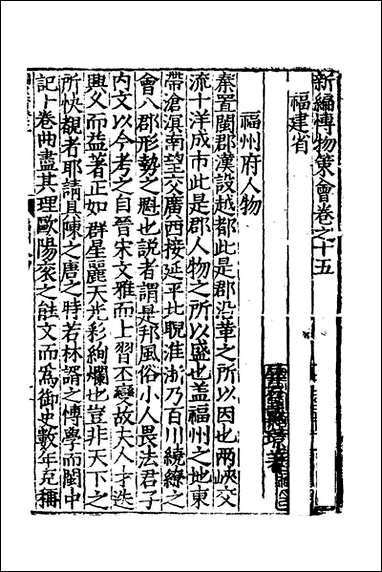 新編博物策會卷之十五
福建省
福州府人物
秦置閩郡漢設越都此是郡沿革之所以因也兩峽交
流十洋成市此是郡人物之所以盛也盖福州之地東
帶滄溟南望交廣西接延平北睨淮浙乃百川繞繚之
會八郡形勢之魁也說者謂是邦風俗小人畏法君子
内文以今考之自晉宋文雅而上習丕變故夫人才迭
興久而益著正如群星麗天光彩絢爛也豈非天下之
所快覩者耶請具陳之唐之時若林諝之博學而閩中
記十卷曲盡其理歐陽衮之註文而爲御史數年克稱